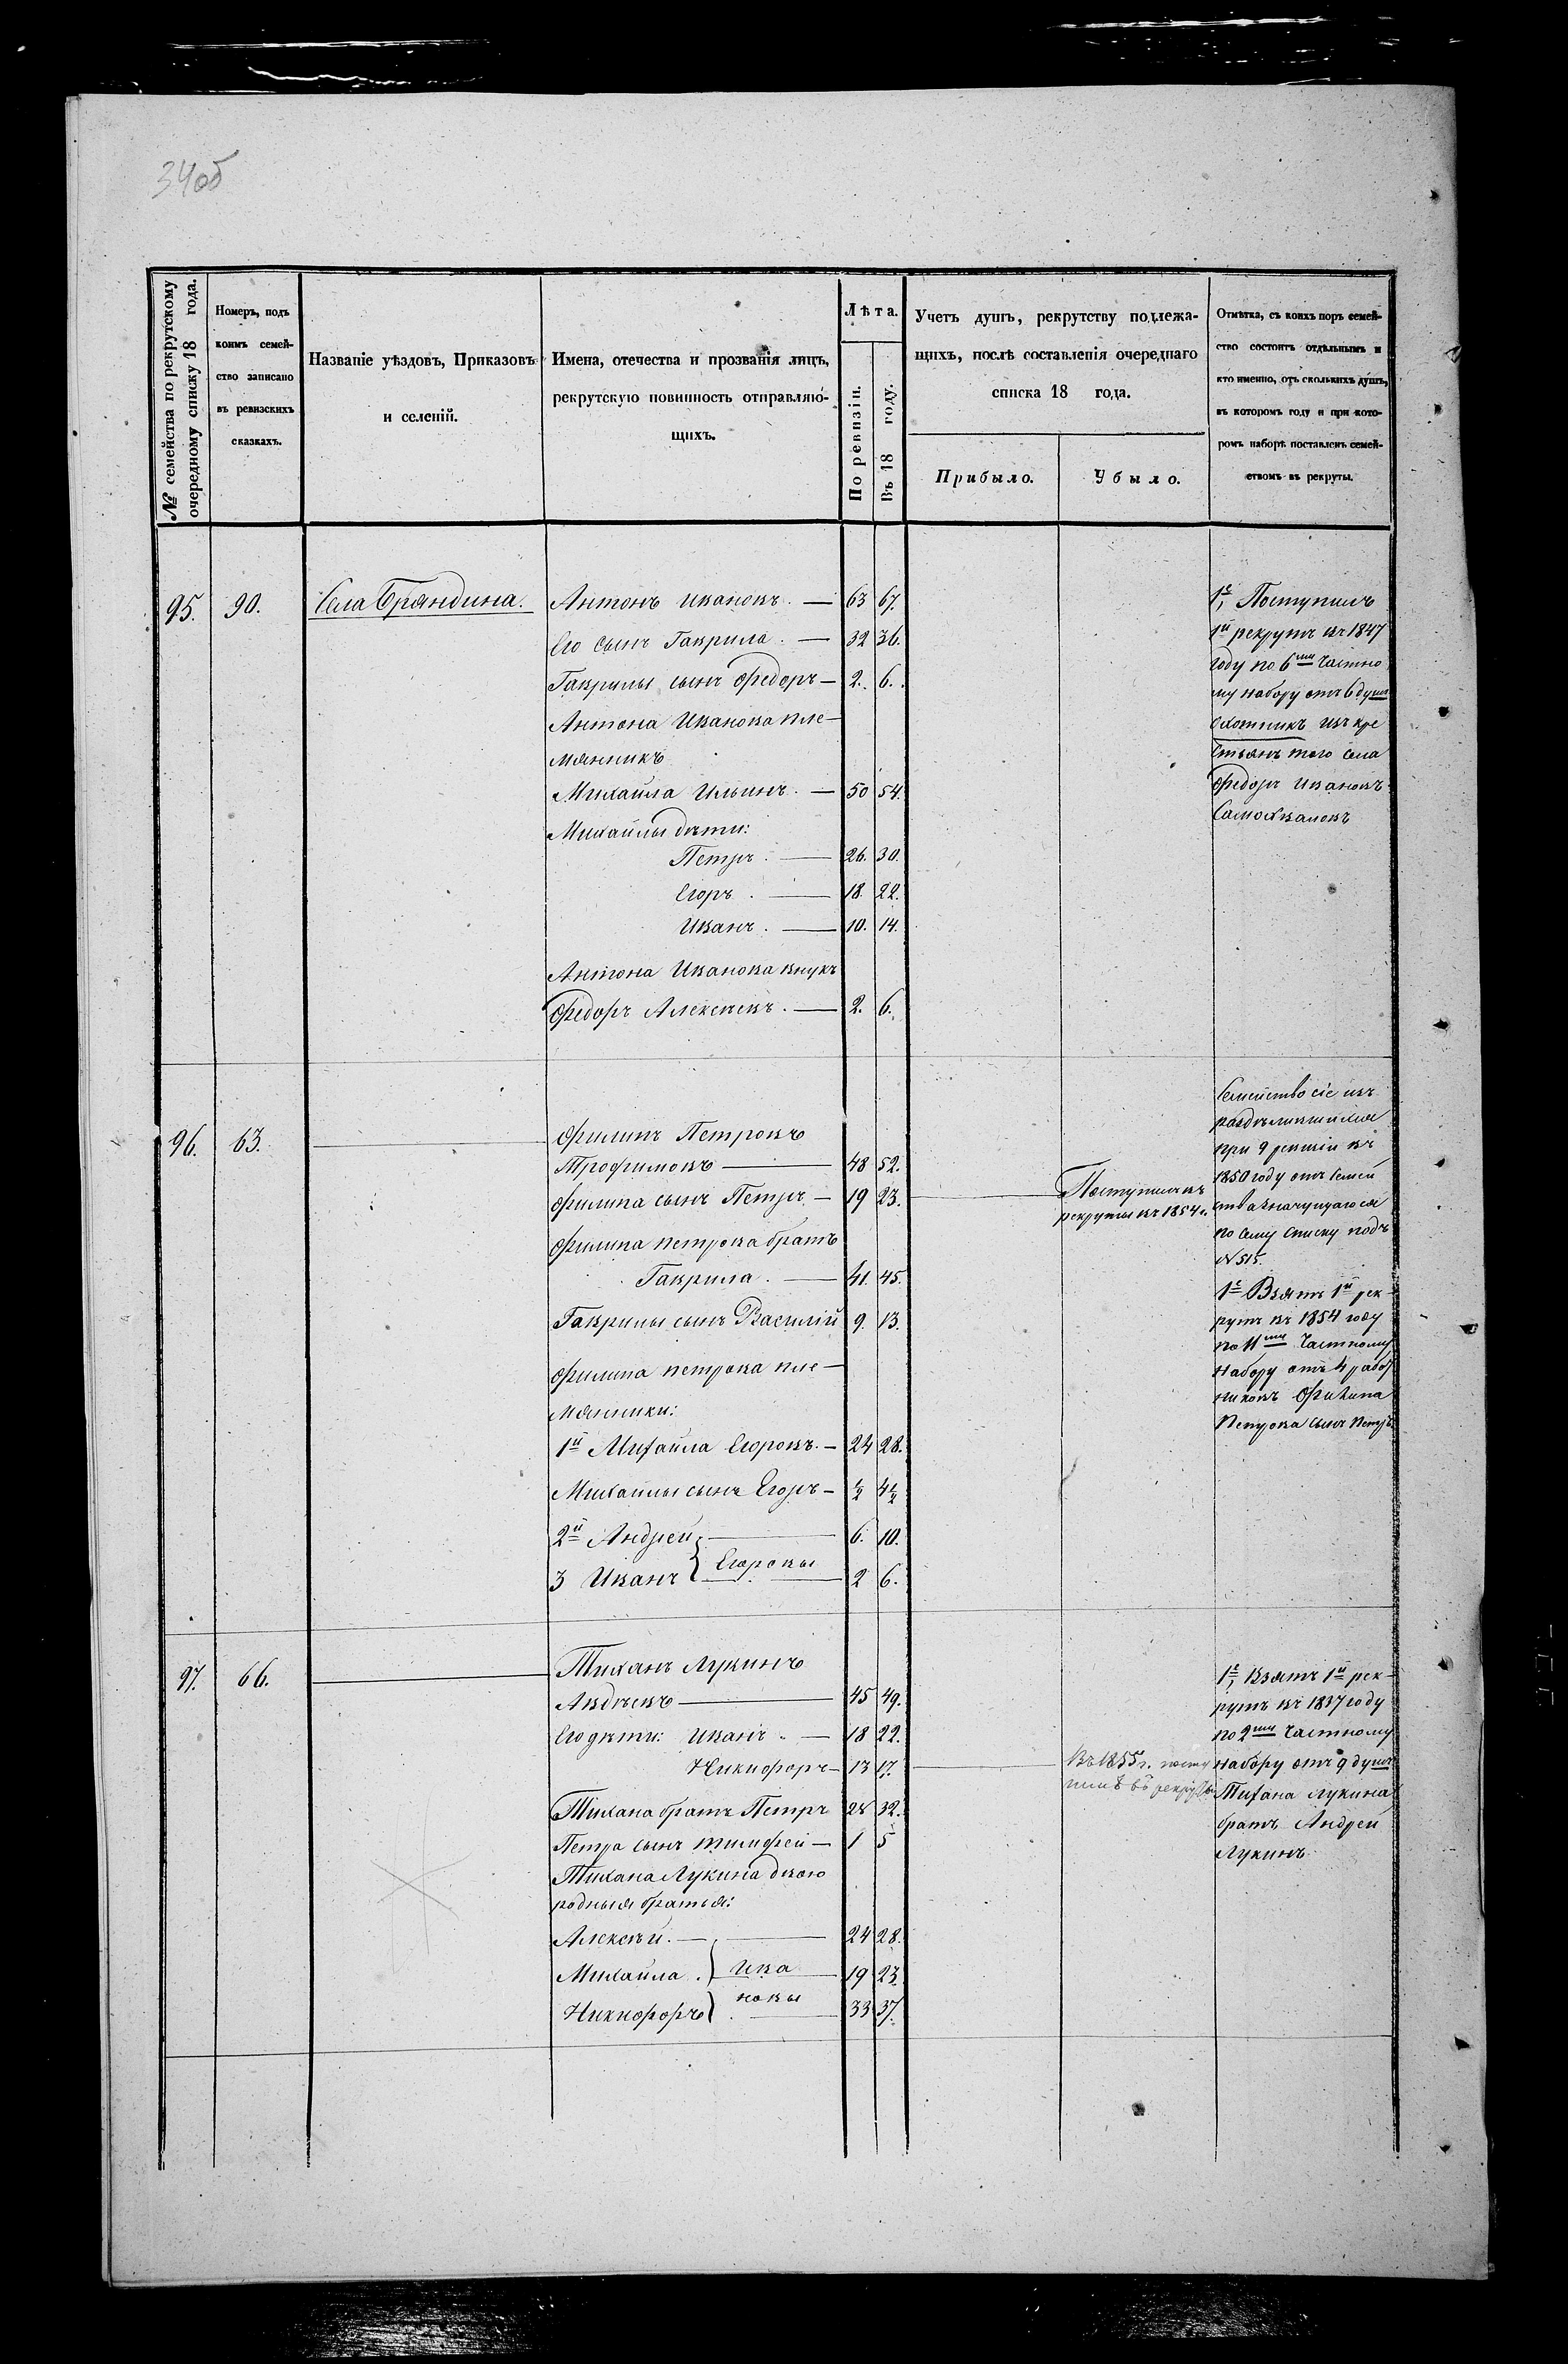 34об
№ семейства по рекрутскому
очередному списку 18 года.
Номеръ, подъ
коимъ семей-
ство записано
въ ревизскихъ
сказкахъ.
Названіе уѣздовъ, Приказовъ
и селеній.
Имена, отечества и прозванія лицъ,
рекрутскую повинность отправляю-
щихъ.
Лѣта.
По ревизіи.
Въ 18 году.
Учетъ душъ, рекрутству подлежа-
щихъ, послѣ составленія очереднаго
списка 18 года.
Прибыло.
Убыло.
Отмѣтка, съ коихъ поръ семей-
ство состоитъ отдѣльнымъ и
кто именно, отъ сколькихъ душъ,
въ котором году и при кото-
ромъ наборѣ поставленъ семей-
ствомъ въ рекруты.
95. 90. Села Бряндина. Антонъ Ивановъ. — 63 67.
Его сынъ Гаврила. — 32 36.
Гаврилы сынъ Федоръ — 2. 6.
Антона Иванова пле-
мянникъ
Михайла Ильинъ. — 50 54.
Михайлы дѣти:
Петръ. — 26. 30.
Егоръ. — 18. 22.
Иванъ. — 10. 14.
Антона Иванова внукъ
Федоръ Алексѣевъ. — 2. 6.
1е, Поступилъ
1й рекрутъ въ 1847
году по 6му частно
му набору отъ 6 душъ
охотникъ изъ кре
стьянъ того села
Федоръ Ивановъ
96. 63. Филипъ Петровъ
Трофимовъ — 48 52.
Филипа сынъ Петръ — 19 23.
Филипа Петрова братъ
Гаврила. — 41. 45.
Гаврилы сынъ Василій 9. 13.
Филипа Петрова пле-
мянники:
1й Михайла Егоровъ. — 24 28.
Михайлы сынъ Егоръ — ½ 4½
2й Андрей — 6. 10.
3 Иванъ } Егоровы — 2 6.
Поступилъ въ
рекруты въ 1854 г.
Семейство сіе изъ
раздѣлившихся
при 9 ревизіи въ
1850 году отъ семей
ства значущагося
по сему списку подъ
№ 515.
1е Взятъ 1й рек-
рутъ въ 1854 году
по 11му частному
набору отъ 4 работ
никовъ Филипа
Петрова сынъ Петръ
97. 66. Тиханъ Лукинъ
Авдѣевъ — 45 49.
Его дѣти: Иванъ. — 18 22.
Никифоръ — 13 17.
Тихана братъ Петръ 28 32.
Петра сынъ Тимофей — 1 5
Тихана Лукина двою
родныя братья:
Алексѣй. — 24 28.
Михайла. } Ива 19 23
Никифоръ } новы 33 37.
Въ 1855 г. посту
пилъ въ рекруты
1е, Взятъ 1й рек-
рутъ въ 1837 году
по 2му частному
набору отъ 9 душъ
Тихана Лукина
братъ Андрей
Лукинъ